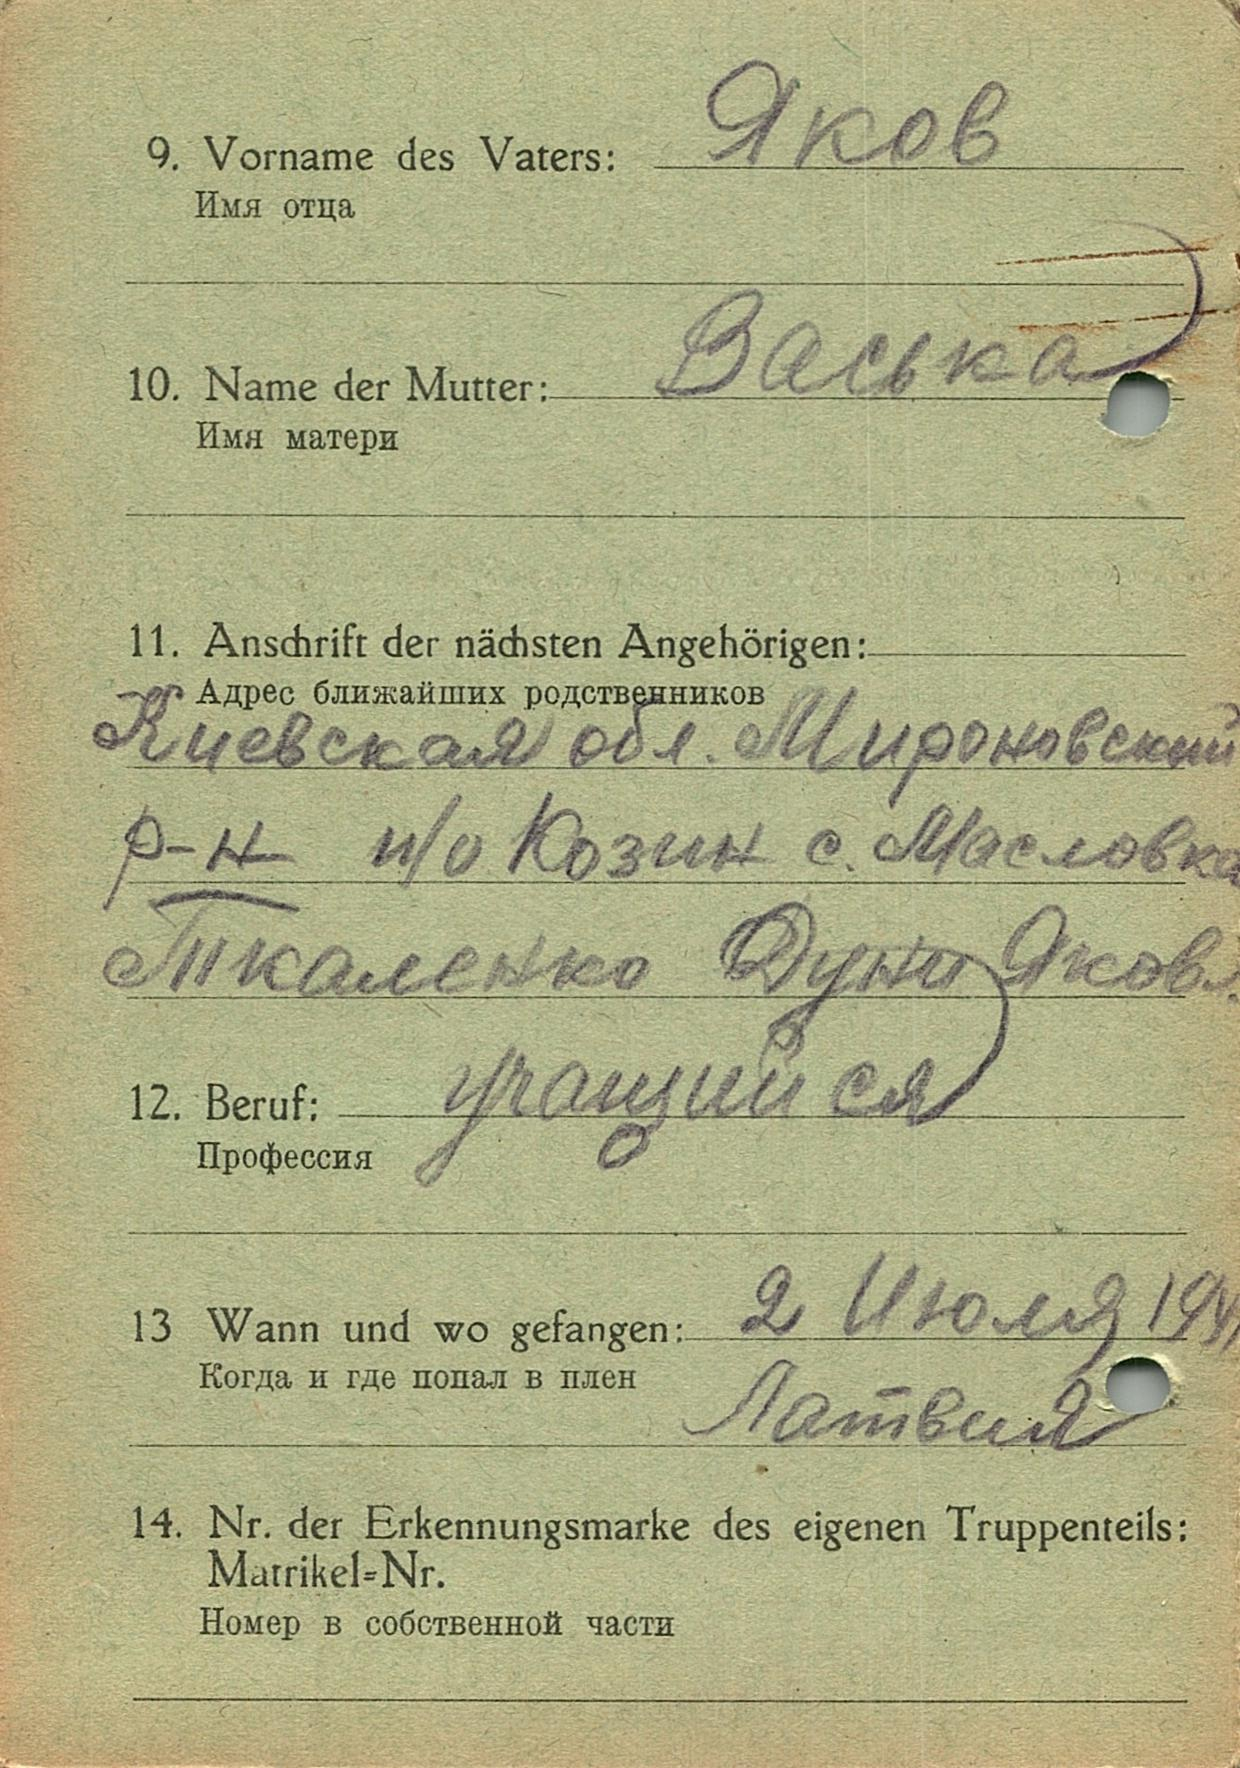 9. Vorname des Vaters: Яков
Имя отца
10. Name der Mutter: Васька
Имя матери
11. Anschrift der nächsten Angehörigen:
Адрес ближайших родственников
Киевская обл. Мироновский
р-н п/о Козин с. Масловка
Ткаленко Дуня Яковл.
12. Beruf: учащийся
Профессия
13 Wann und wo gefangen: 2 Июля 1941
Когда и где попал в плен
Латвия
14. Nr. der Erkennungsmarke des eigenen Truppenteils:
Matrikel=Nr.
Номер в собственной части